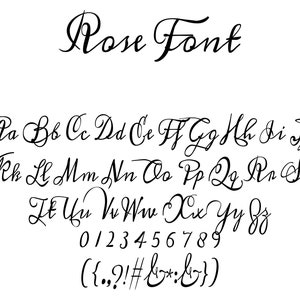 Rose Font
Aa Bb Cc Dd Ee Ff Gg Hh Ii J
Kk Ll Mm Nn Oo Pp Qq Rr S
Tt Uu Vv Ww Xx Yy Zz
0 1 2 3 4 5 6 7 8 9
({.,?!#&*:&})